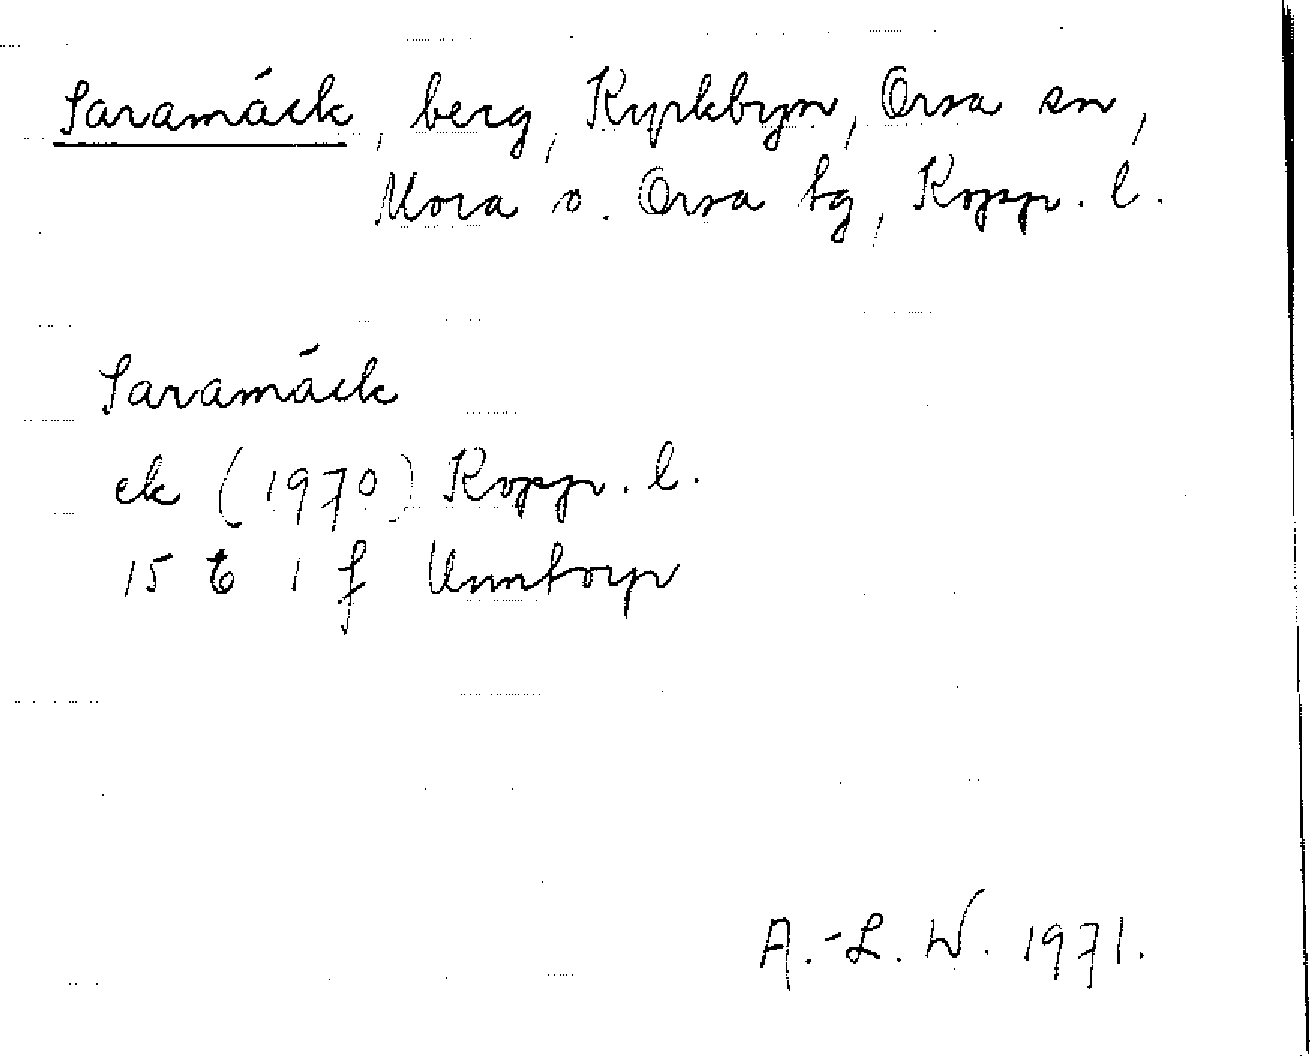 Saramáck, berg, Kyrkbyn, Orsa sn,
Mora o. Orsa tg, Kopp. l.
Saramáck
ek (1970) Kopp. l.
15 E 1 f Unntorp
A.-L. W. 1971.